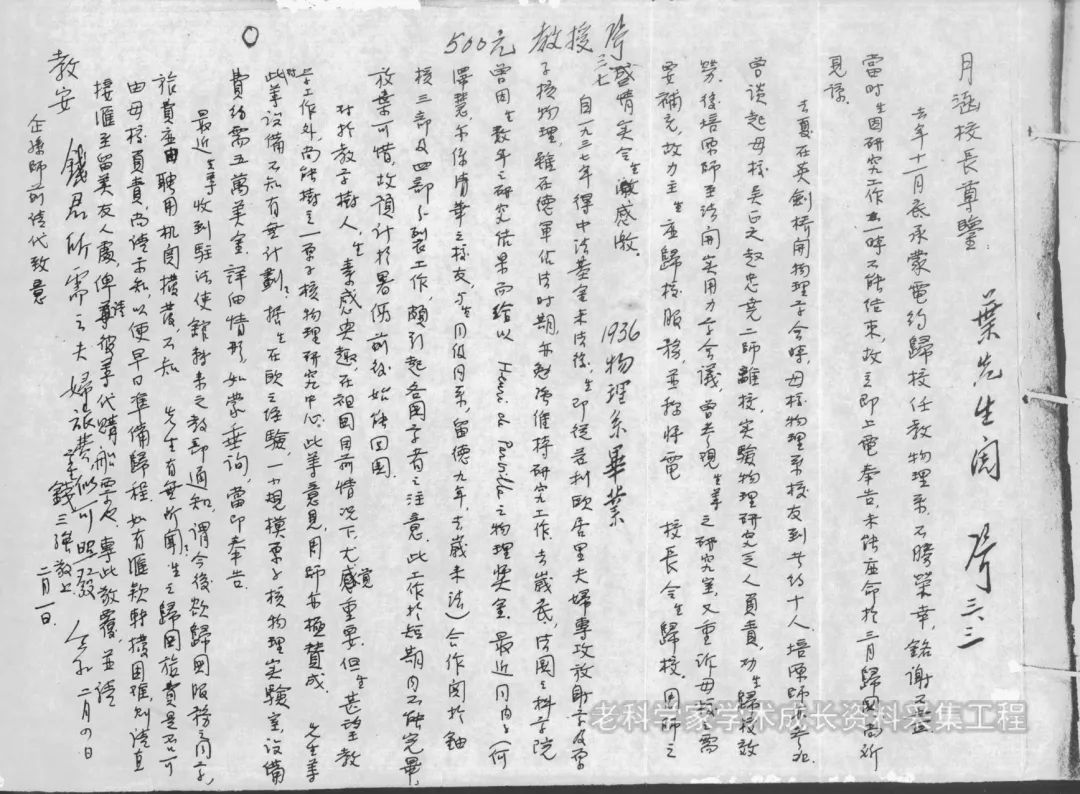 葉先生閱 琴 三、三
月涵校長草鑒
去年十一月底承蒙電約歸校任教物理系，不勝榮幸，銘謝
當時生因研究工作一時不能結束，故立即上電奉告，未能應命於三月歸國，尚祈
見諒。
去夏在英劍橋開物理學會時，母校物理系校友到者約十人，培源師
曾談起母校吳正之趙忠堯二師離校，實驗物理研究乏人負責，功生歸校效
勞，後培源師至法開實用力學會議，曾參觀生等之研究室，又重訴母校之需
要補充，故力主生應歸校服務，並稱將電 校長令生歸校，周師之
盛情实令生激感激。
500元 教授 琴 三、七
1936物理系畢業
自一九三七年得中法基金来法後，生即從茲利歐居里夫婦專攻放射學及原
子核物理，雖在德軍佔法時期，亦勉強維持研究工作，去歲底，法國之科學院
曾因生數年之研究結果而給以 Henri de Parville 之物理獎金，最近同内子（何
澤慧，亦係清華之校友，与生同級同系，留德九年，去歲来法）合作関於鈾
核三部及四部分裂工作，頗引起各國学者之注意，此工作於短期内不能完畢，
放棄可惜，故預計於暑假前後始能回國。
对於教学樹人，生素感興趣，在祖國目前情况下，尤感覺重要，但生甚望教
学工作外，尚能樹立一原子核物理研究中心，此等意見，周師亦極贊成， 先生等
对此等設備不知有無計劃？據生在歐之經驗，一小規模原子核物理實驗室，設備
費約需五萬美金，詳細情形，如蒙垂詢，當即奉告。
最近生等收到駐法使館轉来之教部通知，謂今後欲歸國服務之同学，
旅費應由聘用机関撥發，不知 先生有無所聞？生之歸國旅費是否可
由母校負責，尚請示知，以便早日準備歸程，如有匯款轉撥困難，則請直
接匯至留美友人處，俾請彼等代購船票，專此敬覆，並請
教安
生錢三強敬上
二月一日
企孫師前請代致意
錢君所需之夫婦旅費似可照發
二月四日
老科学家学术成长资料采集工程